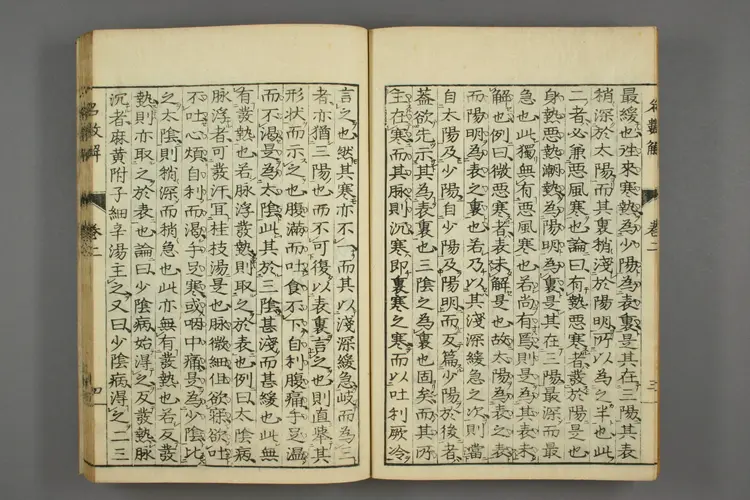 最緩也往來寒熱為少陽為表裏是其在三陽其表
稍深於太陽而其裏稍淺於陽明所以為之半也此
二者必兼惡風寒也論曰有熱惡寒者發於陽是也
身熱惡熱潮熱為陽明為裏是其在三陽最深而最
急也此獨無有惡風寒也若尚有焉則是為其表未
解也例曰微惡寒者表未解是也故太陽為表之表
而陽明為表之裏也若乃以其淺深緩急之次則當
自太陽及少陽自少陽及陽明而反篇少陽於後者
蓋欲先示其為表裏也三陰之為裏也固矣而其所
主在寒而其脉則沉寒即裏寒之寒而以吐利厥冷
言之也然其寒亦不一而其以淺深緩急岐而為三
者亦猶三陽也而不可復以表裏言之也則直舉其
形狀而示之也腹滿而吐食不下自利腹痛手足溫
而不渴是為太陰此其於三陰甚淺而甚緩也此無
有發熱也若脉浮發熱則取之於表也例曰太陰病
脉浮者可發汗宜桂枝湯是也脉微細但欲寐欲吐
不吐心煩自利而渴手足寒或咽中痛是為少陰比
之太陰則稍深而稍急也此亦無有發熱也若反發
熱則亦取之於表也論曰少陰病始得之反發熱脉
沉者麻黃附子細辛湯主之又曰少陰病得之二三
卷二
三
卷二
四